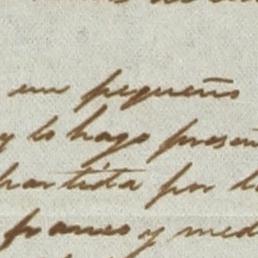 un pequeño
y lo hago presen
partida por l
franco y med